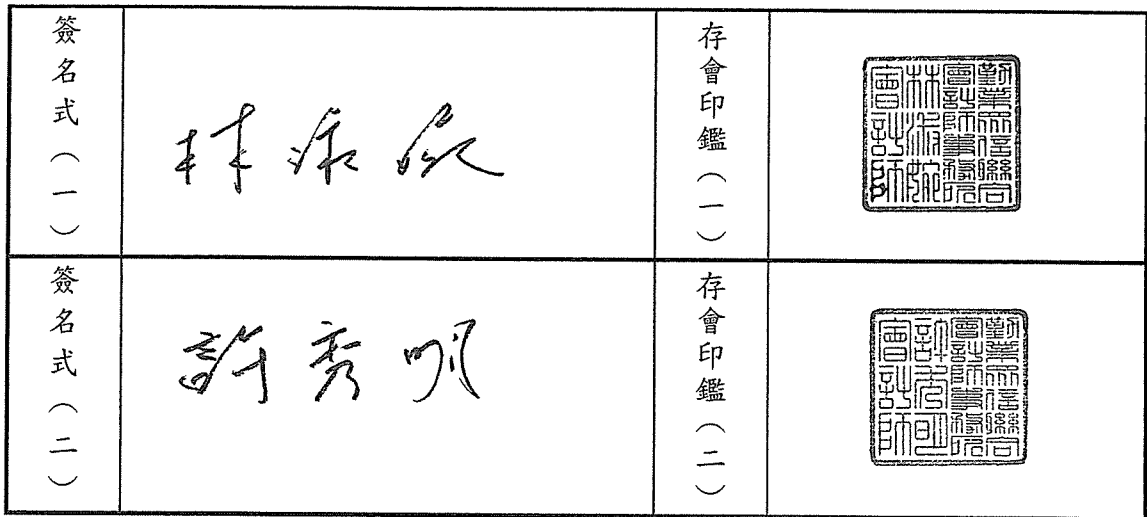 簽名式（一）
林淑婉
存會印鑑（一）
勤業眾信聯合
會計師事務所
林淑婉
會計師
簽名式（二）
許秀明
存會印鑑（二）
勤業眾信聯合
會計師事務所
許秀明
會計師